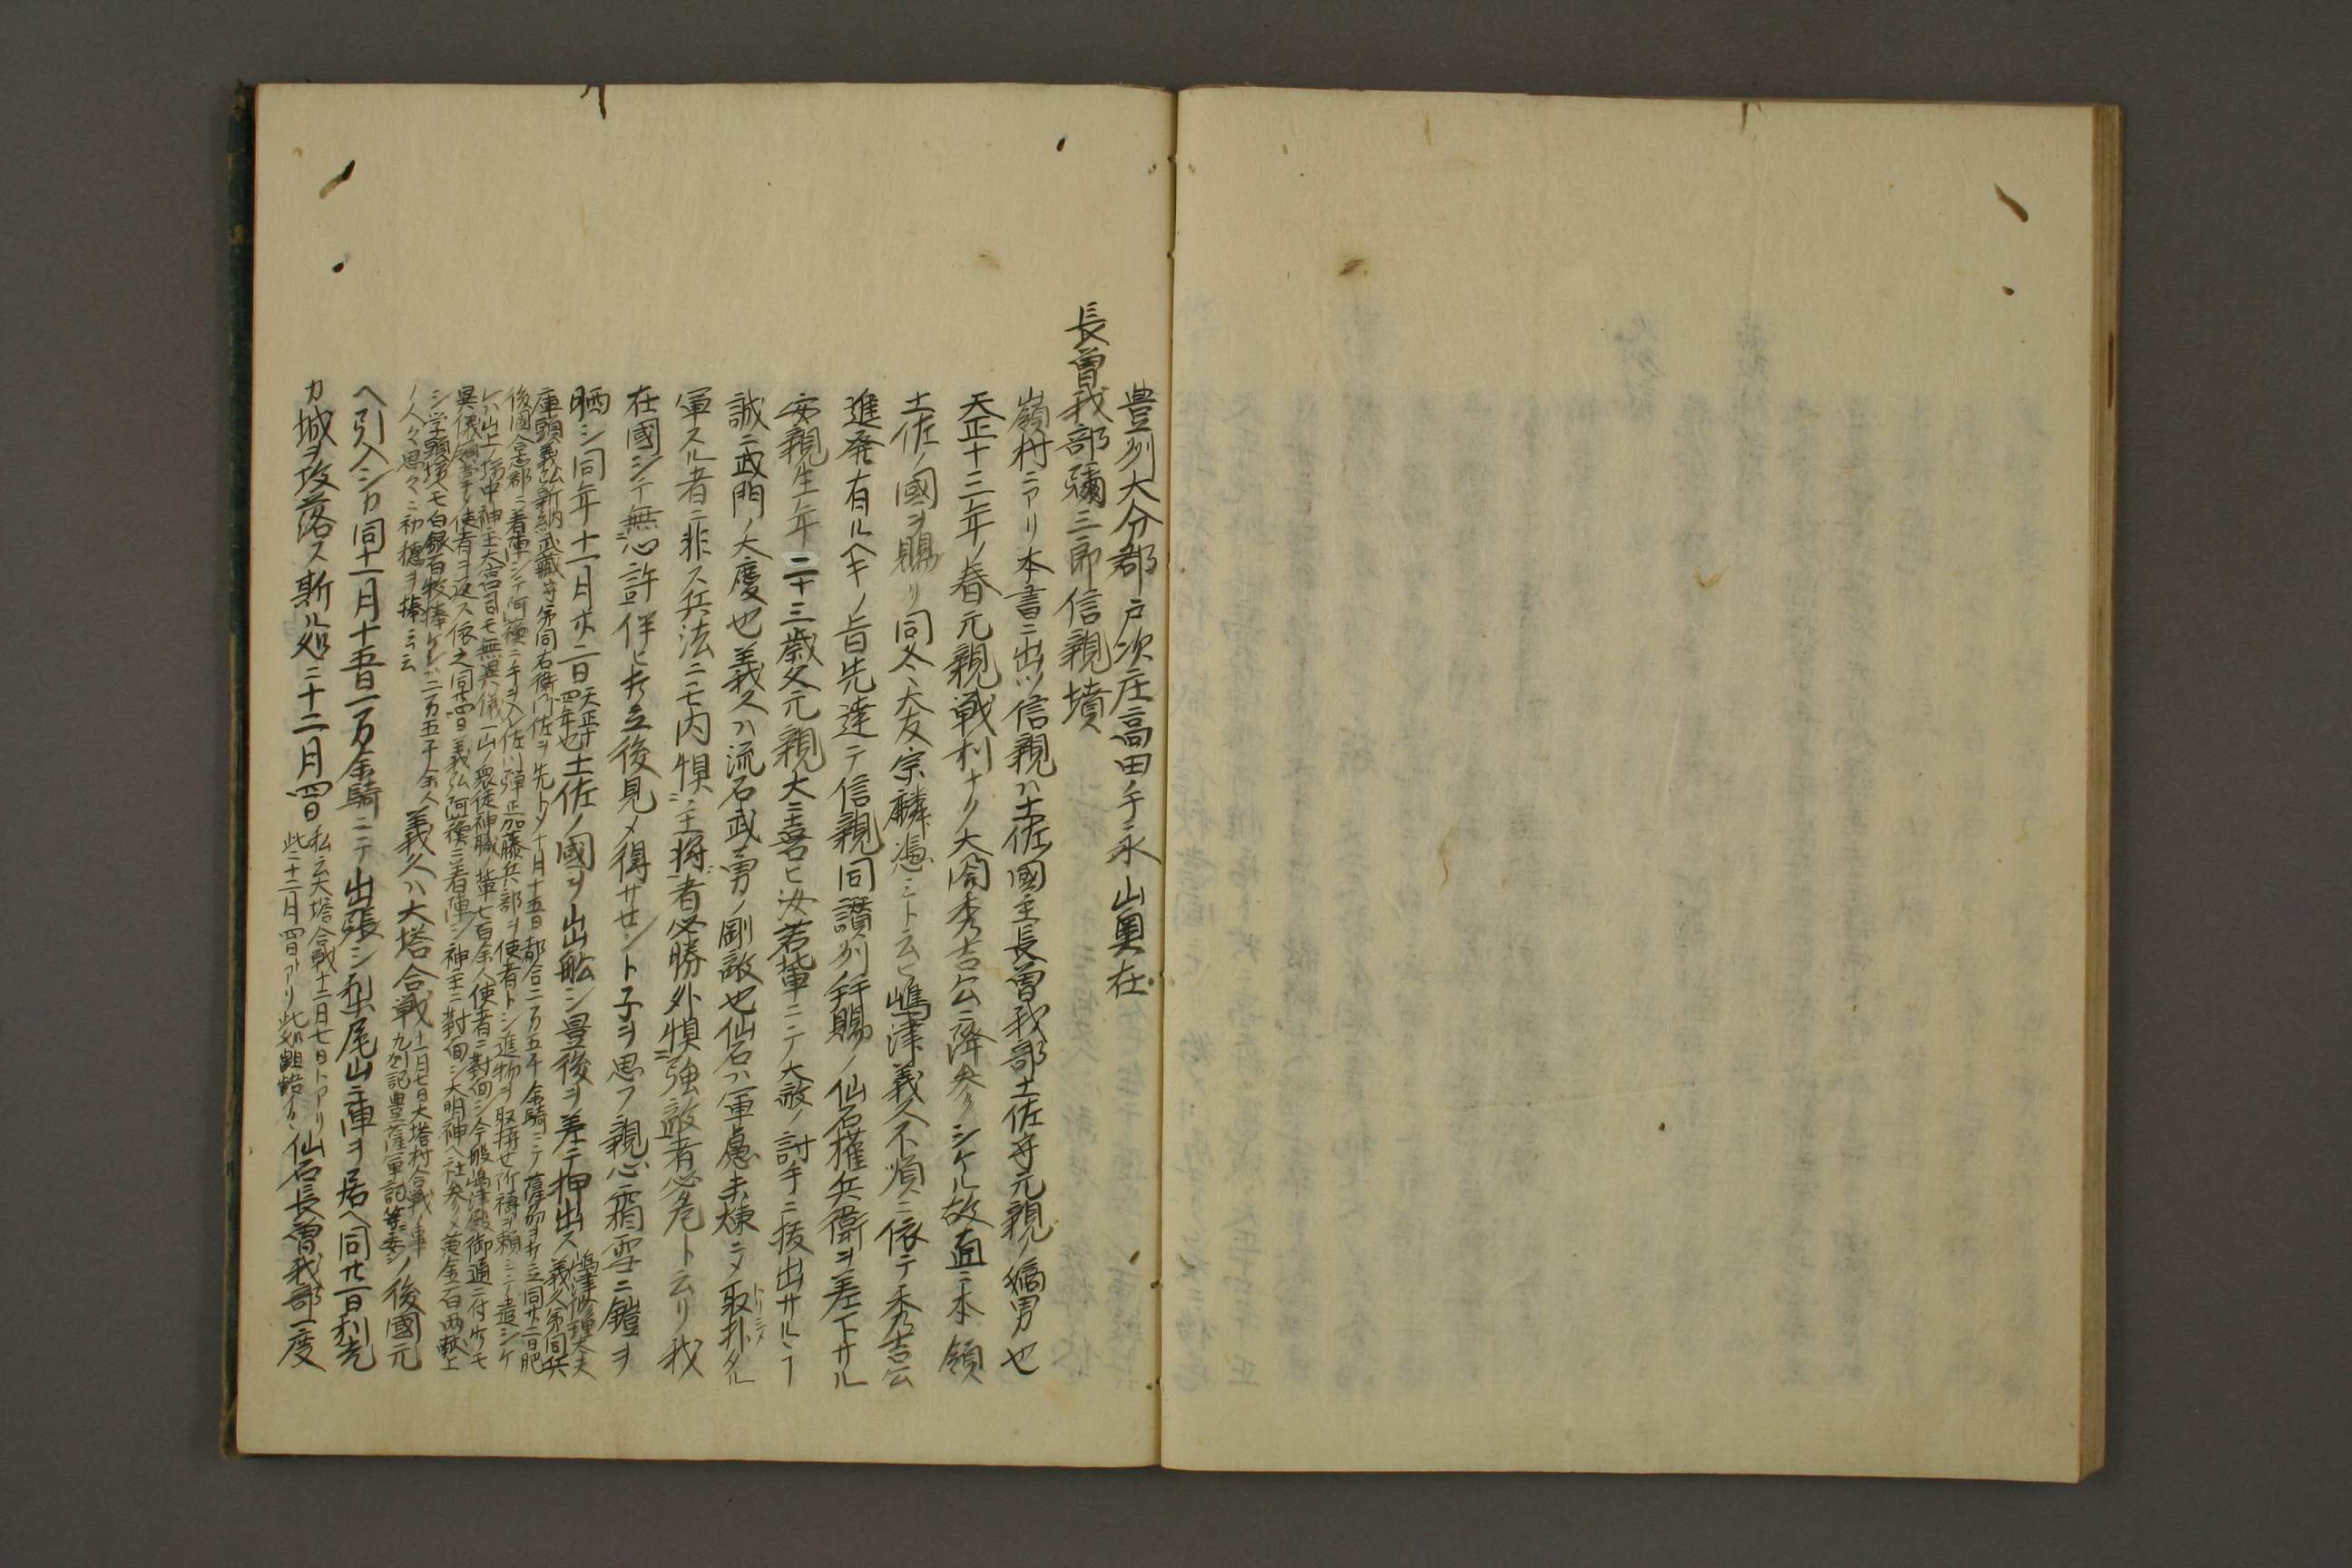 豊州大分郡戸次庄高田ノ手永山奥在
長曽我部彌三郎信親墳
嶺村ニアリ本書ニ出ツ信親ハ土佐國主長曽我部土佐守元親ノ嫡男也
天正十三年ノ春元親戦利ナク大閤秀吉公ニ降参シケル故直ニ本領
土佐ノ國ヲ賜リ同冬大友宗麟憑ミト云ヒ嶋津義久不順ニ依テ秀吉公
進発有ルヘキノ旨先達テ信親同讃州拜賜ノ仙石権兵衛ヲ差下サル
安親生年二十三歳父元親大ニ喜ヒ汝若輩ニテ大敵ノ討手ニ抜出サルヽ
誠ニ武門ノ大慶也義久ハ流石武勇ノ剛敵也仙石ハ軍慮未煉ニメ取扑タル
トリシメ
軍スル者ニ非ス兵法ニモ内惧ニ主将者必勝外惧ニ強敵者必危ト云リ我
在國シテ無心許伴ヒ立後見メ得サセント子ヲ思フ親心霜雪ニ鎧ヲ
晒シ同年十一月廿二日
天正十
四年也
土佐ノ國ヲ出舩シ豊後ヲ差テ押出ス
嶋津修理大夫
義久弟同兵
庫頭義弘新納武藏守弟同右衛門佐ヲ先トメ十月十五日都合二万五千余騎ニテ薩劦ヲ立同廿二日肥
後國合志郡ニ着陣シテ阿蘓ニ手ヲ入佐川弾正加藤兵部ヲ使者トシ進物ヲ取持セ所祷ヲ頼ミニテ遣シケ
レハ山上ノ坊中神主大宮司モ無異儀一山ノ衆徒神職ノ輩七百余人使者ニ對面シ今般嶋津殿御通ニ付ケモ
異儀使者ヲ返ス依之同廿四日義弘阿蘓ニ着陣シ神主ニ對面シ大明神ヘ社参メ黄金百両献上
シ学頭坊ヘモ白銀百枚捧ケレハ二万五千余人
ノ人々思々ニ初穂ヲ捧シ云云
義久ハ大塔合戦
十二月七日大塔村合戦ノ事
九劦記豊薩軍記等ニ委シ
ノ後國元
ヘ引入シカ同十一月十五日一万余騎ニテ出張シ梨尾山ニ陣ヲ居ヘ同廿一日利光
カ城ヲ攻落ス斯ル処ニ十二月四日
私ニ云大塔合戦十二月七日トアリ
此ニ十二月四日トアリ此処齟齬ス
仙石長曽我部一度